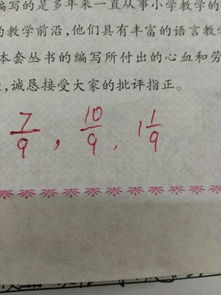 编写的是多年来一直从事小学教学的
的教学前沿,他们具有丰富的语言教
本套丛书的编写所付出的心血和劳
,诚恳接受大家的批评指正。
7/9, 10/9, 1 1/9